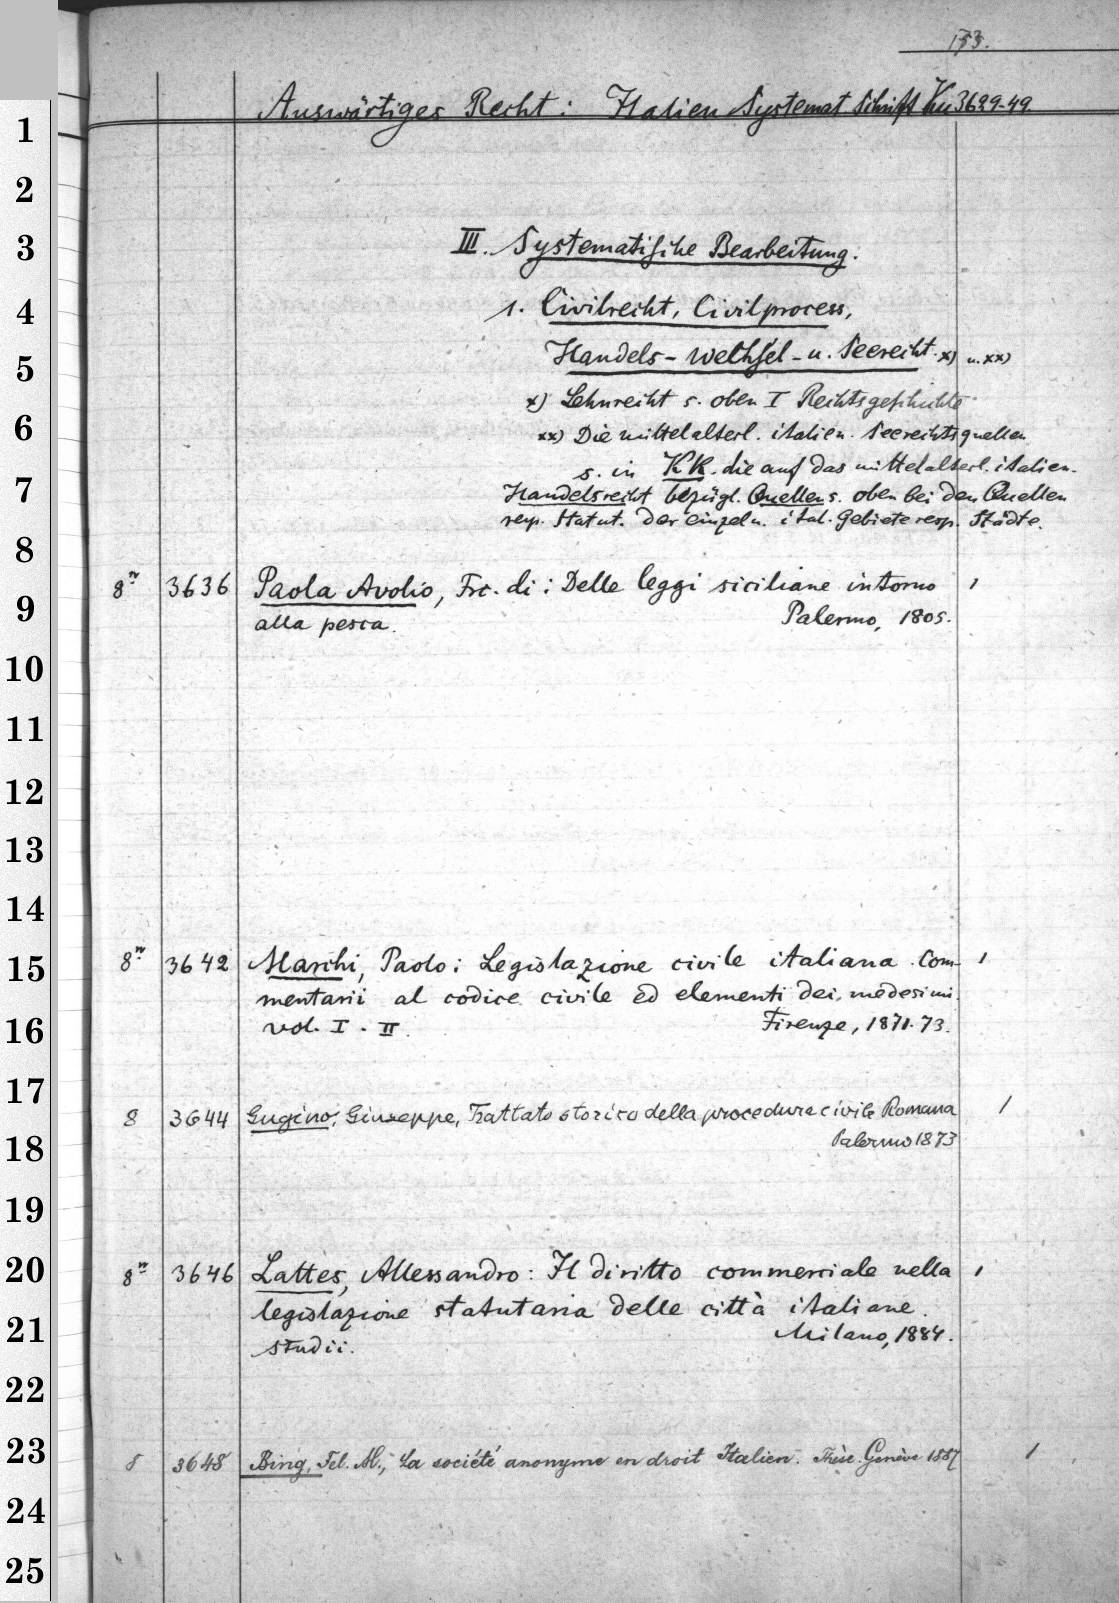 153.
Auswärtiges Recht: Italien Systemat. Schrift Ku 3629-49
1
2
III. Systematische Bearbeitung.
3
1. Civilrecht, Civilprocess,
4
Handels- Wechsel- u. Seerecht. x) u. xx)
5
x) Lehnrecht s. oben I Rechtsgeschichte
6
xx) Die mittelalterl. italien. Seerechtsquellen
s. in KK. die auf das mittelalterl. italien.
7
Handelsrecht bezügl. Quellen s. oben bei den Quellen
resp. Statut. der einzeln. ital. Gebiete resp. Städte.
8
8° 3636 Paola Avolio, Frc. di: Delle leggi siciliane intorno 1
9
alla pesca. Palermo, 1805.
10
11
12
13
14
8° 3642 Marchi, Paolo: Legislazione civile italiana. Com- 1
15
mentarii al codice civile ed elementi dei medesimi.
vol. I. II. Firenze, 1871-73.
16
17
8 3644 Gugino, Giuseppe, Trattato storico della procedura civile Romana 1
Palermo 1873
18
19
8° 3646 Lattes, Allessandro: Il diritto commerciale nella 1
20
legislazione statutaria delle città italiane.
studii. Milano, 1884.
21
22
8 3648 Bing, Fel. M., La société anonyme en droit Italien. Thèse. Genève 1887 1
23
24
25